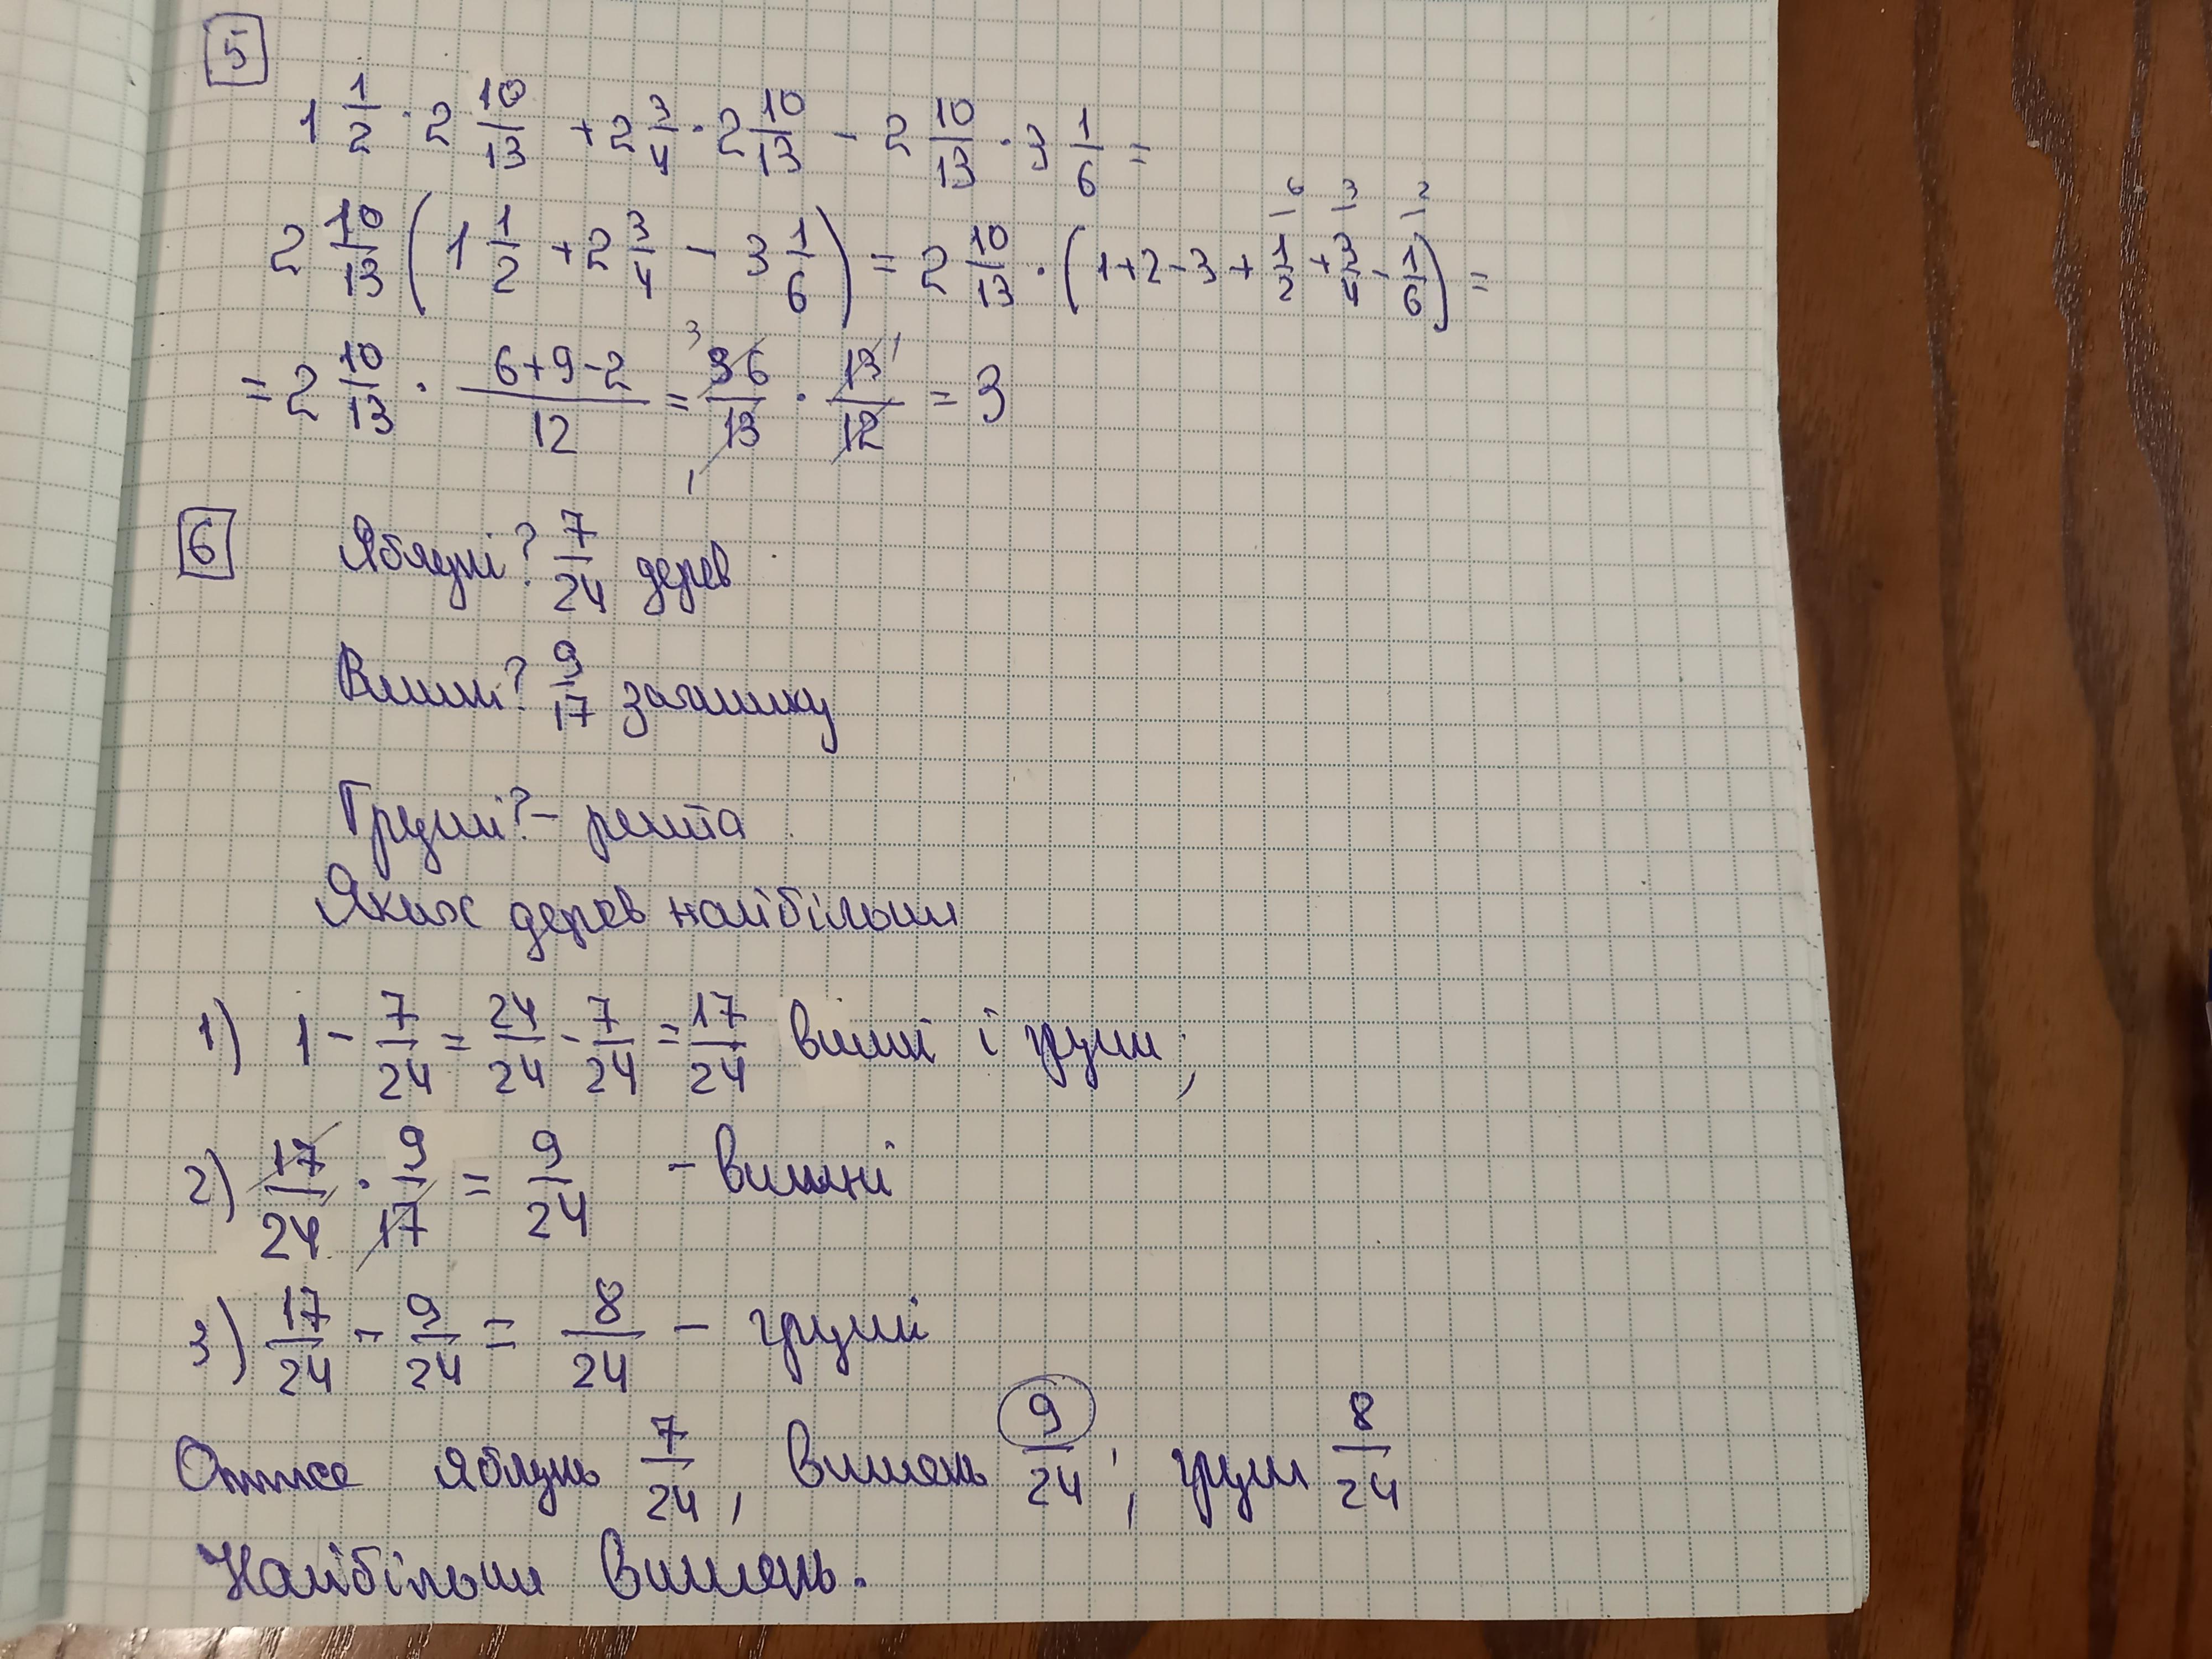 5
1 1/2 · 2 10/13 + 2 3/4 · 2 10/13 - 2 10/13 · 3 1/6 =
2 10/13 (1 1/2 + 2 3/4 - 3 1/6) = 2 10/13 · (1+2-3 + 1/2 + 3/4 - 1/6) =
6 3 2
= 2 10/13 · (6+9-2)/12 = 36/13 · 13/12 = 3
3 1
1
6 Яблуні ? 7/24 дерев
Вишні ? 9/17 залишку
Груші ? - решта
Яких дерев найбільше
1) 1 - 7/24 = 24/24 - 7/24 = 17/24 вишні і груші;
2) 17/24 · 9/17 = 9/24 - вишні
3) 17/24 - 9/24 = 8/24 - груші
Отже яблунь 7/24, вишень 9/24; груш 8/24
Найбільше вишень.